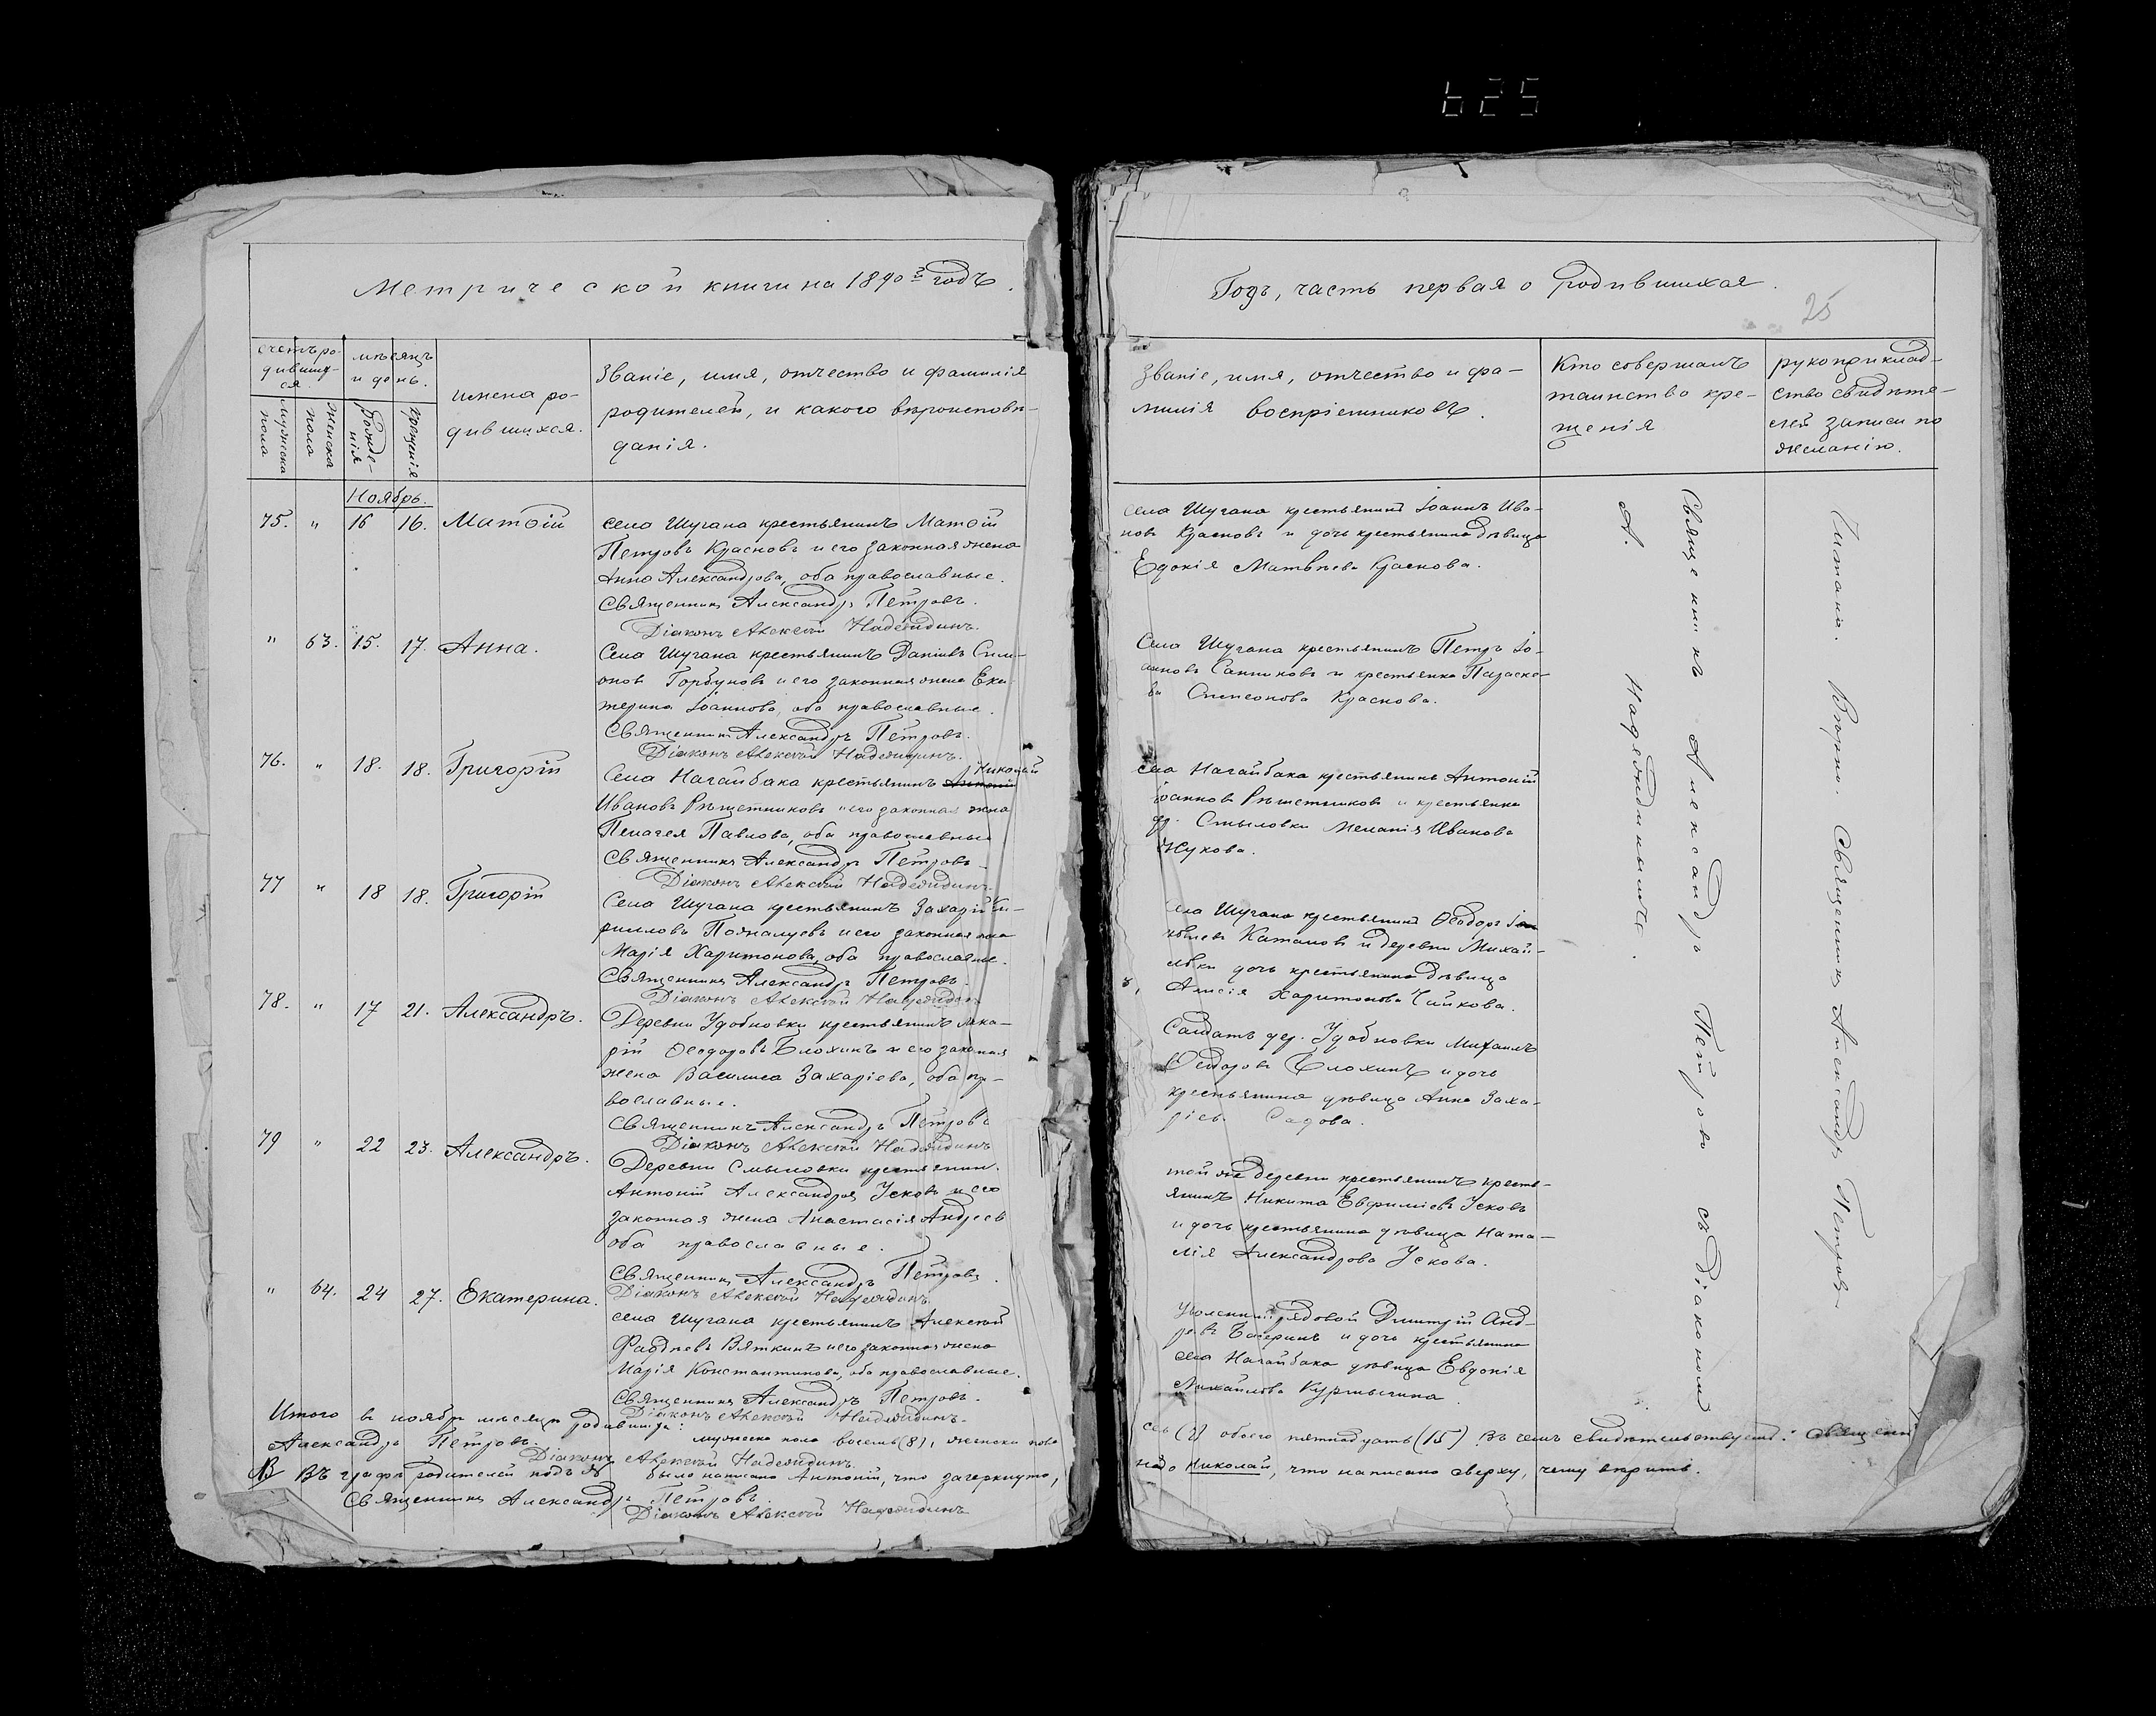 625
Метрической книги на 1890й годъ.
счетъ ро-
дивших-
ся
мѣсяцъ
и день.
имена ро-
дившихся.
Званіе, имя, отчество и фамилія
родителей, и какого вѣроисповѣ-
данія.
Мужеска
пола
Женска
пола
Рожде-
нія
Крещенія
Ноябрь.
75. " 16 16. Матѳій
села Шугана крестьянинъ Матѳій
Петровъ Красновъ и его законная жена
Анна Александрова, оба православные.
Священникъ Александръ Петровъ.
Діаконъ Алексѣй Надеждинъ.
" 63. 15. 17. Анна.
Села Шугана крестьянинъ Даніилъ Сим-
оновъ Горбуновъ и его законная жена Ека-
терина Іоаннова, оба православные.
Священникъ Александръ Петровъ.
Діаконъ Алексѣй Надеждинъ.
76. " 18. 18. Григорій
Николай
Села Нагайбака крестьянинъ Антоній
Ивановъ Рѣшетниковъ и его законная жена
Пелагея Павлова, оба православные
Священникъ Александръ Петровъ.
Діаконъ Алексѣй Надеждинъ.
77 " 18 18. Григорій
Села Шугана крестьянинъ Захарій Ки-
рилловъ и его законная жена
Марія Харитонова, оба православные.
Священникъ Александръ Петровъ.
Діаконъ Алексѣй Надеждинъ
78. " 17 21. Александръ.
Деревни Удобновки крестьянинъ Мака-
рій Ѳеодоровъ Блохинъ и его законная
жена Василиса Захаріева, оба пра-
вославные.
Священникъ Александръ Петровъ
Діаконъ Алексѣй Надеждинъ
79 " 22 23. Александръ.
Деревни Смыловки крестьянин.
Антоній Александровъ Усковъ и его
законная жена Анастасія Андреева
оба православные.
Священникъ Александръ Петровъ.
Діаконъ Алексѣй Надеждинъ.
" 64. 24 27. Екатерина.
села Шугана крестьянинъ Алексѣй
Фаддѣевъ Вяткинъ и его законная жена
Марія Константинова, оба православные.
Священникъ Александръ Петровъ.
Діаконъ Алексѣй Надеждинъ.
Итого въ ноябрѣ мѣсяцѣ родившихся: мужеска пола восемь (8), женска пола
Александръ Петровъ.
Діаконъ Алексѣй Надеждинъ.
В графѣ родителей подъ было написано Антоній, что зачеркнуто,
Священникъ Александръ Петровъ
Діаконъ Алексѣй Надеждинъ
Годъ, часть первая о родившихся.
25
Званіе, имя, отчество и фа-
милія воспріемниковъ.
Кто совершалъ
таинство кре-
щенія
рукоприклад-
ство свидѣте-
лей записи по
желанію.
села Шугана крестьянинъ Іоаннъ Ива-
новъ Красновъ и дочь крестьянина дѣвица
Евдокія Матвѣева Краснова.
Села Шугана крестьянинъ Петръ Іо-
анновъ Санниковъ и крестьянка Параске-
ва Симеонова Краснова.
села Нагайбака крестьянинъ Антоній
Іоанновъ Рѣшетниковъ и крестьянка
др. Смыловки Меланія Иванова
Жукова.
села Шугана крестьянинъ Ѳеодоръ
Катановъ и деревни Михай-
ловки дочь крестьянина дѣвица
Анисія Харитонова Чайкова.
Солдатъ дер. Удобновки Михаилъ
Ѳеодоровъ Блохинъ и дочь
крестьянина дѣвица Анна Заха-
ріева Садова.
той же деревни крестьянинъ кресть-
янинъ Никита Евфиміевъ Усковъ
и дочь крестьянина дѣвица Ната-
лія Александрова Ускова.
рядовой Дмитрій Анд-
реевъ и дочь крестьянина
села Нагайбака дѣвица Евдокія
Михайлова
Священникъ Александръ Петровъ съ Діакономъ
А. Надеждинымъ.
Читалъ. Вѣрно. Священникъ Александръ Петровъ
семь (7) обоего пятнадцать (15) Въ чемъ свидѣтельствуемъ: Священникъ
надо Николай, что написано сверху, чему вѣрить.